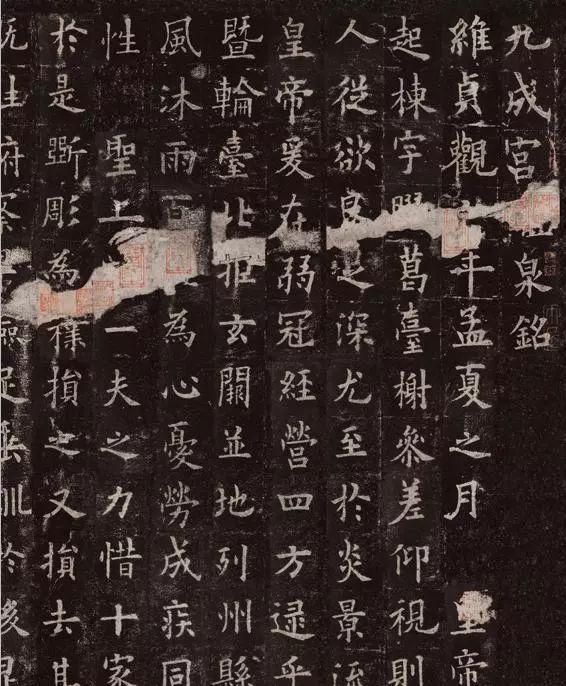 九成宮泉銘
維貞觀年孟夏之月 皇帝
起棟宇葛臺榭參差仰視則
人從欲良足深尤至於炎景流
皇帝爰在弱冠經營四方逮乎
暨輪臺北拒玄闕並地列州縣
風沐雨百為心憂勞成疾同
性 聖上一夫之力惜十家
於是斲彫為樸損之又損去甚
往府察卑儉足垂訓於後昆